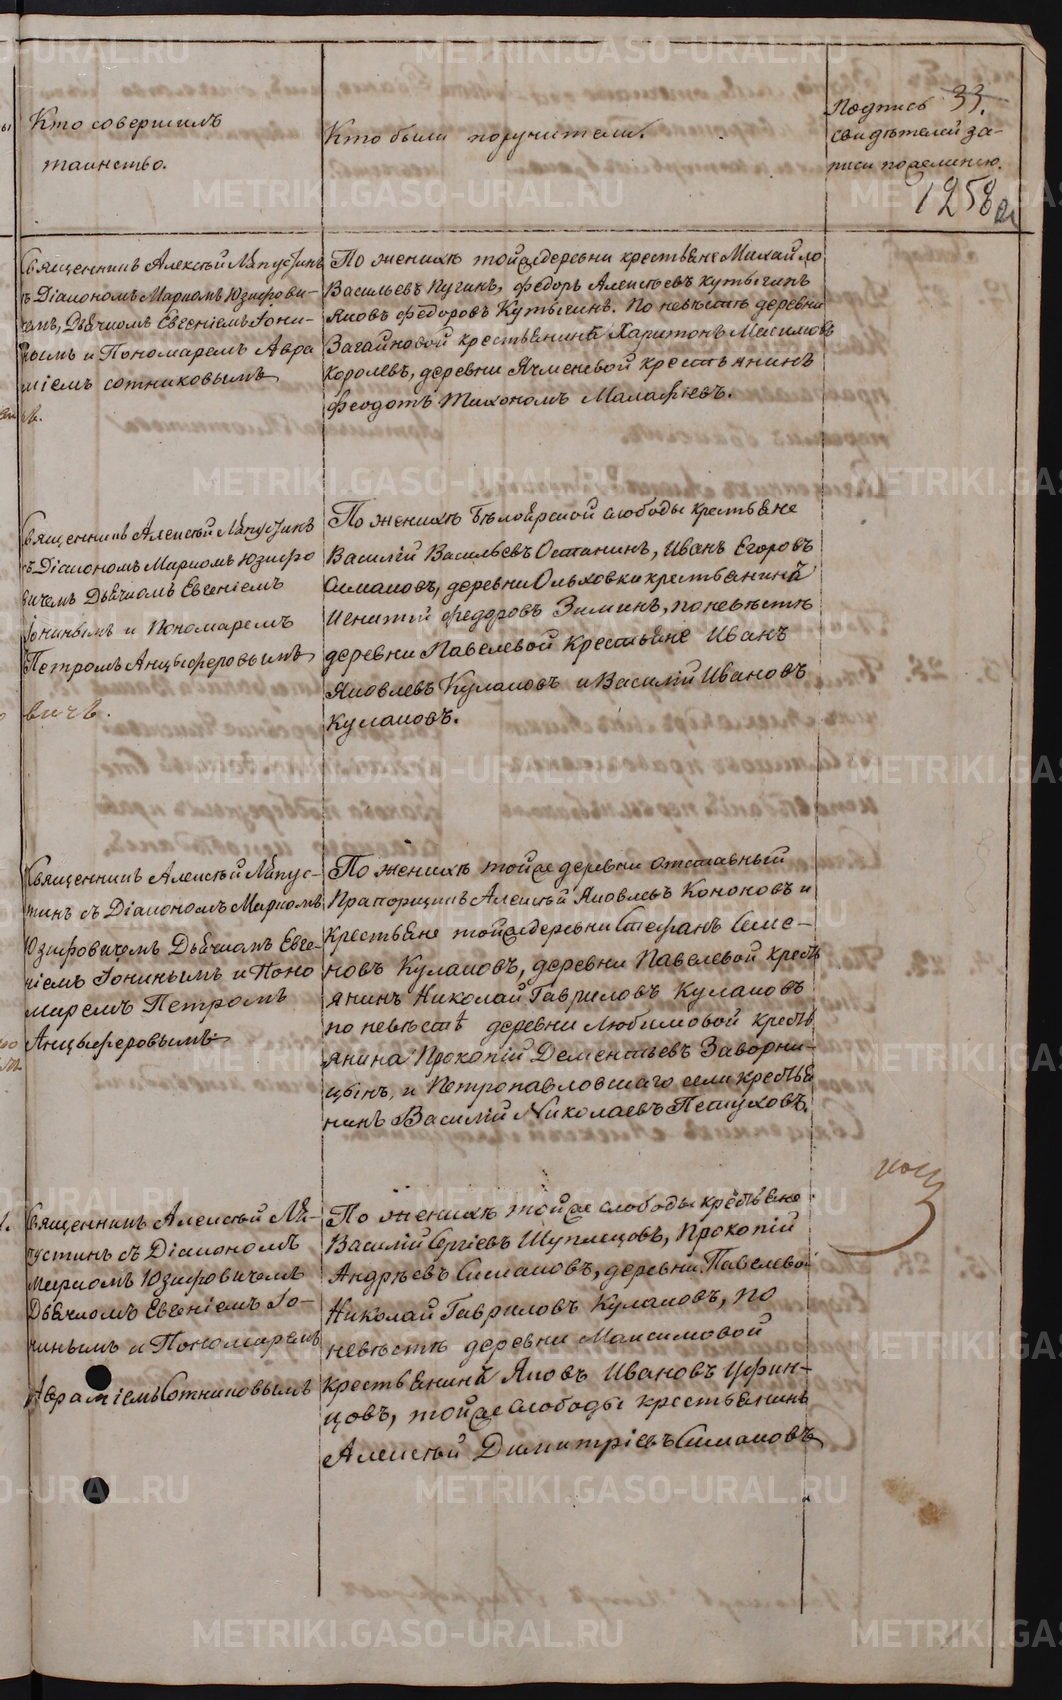 Кто совершилъ
таинство.
Кто были поручители.
Подпись 33.
свидѣтелей за-
писи по желанію.
1258
Священникъ Алексѣй Лапустинъ
съ Діакономъ Маркомъ Юзифови-
чемъ, Дьячкомъ Евгеніемъ Іони-
нымъ и Пономаремъ Авра
міемъ Сотниковымъ
По женихѣ тойже деревни крестьяне Михайло
Васильевъ Пугинъ, Федоръ Алексѣевъ Кутыгинъ
Яковъ Федоровъ Кутыгинъ. По невѣстѣ деревни
Загайновой крестьянинъ Харитонъ Максимовъ
Королевъ, деревни Ячменевой крестьянинъ
Феодотъ Тихономъ Малафѣевъ.
Священникъ Алексѣй Лапустинъ
съ Діакономъ Маркомъ Юзифо
вичемъ Дьячкомъ Евгеніемъ
Іонинымъ и Пономаремъ
Петромъ Анцыферовымъ
вичъ.
По женихѣ Бѣлоярской слободы крестьяне
Василій Васильевъ Останинъ, Иванъ Егоровъ
Симановъ, деревни Ольховки крестьянинъ
Никитій Федоровъ Зиминъ, по невѣстѣ
деревни Павелевой Крестьяне Иванъ
Яковлевъ Кулаковъ и Василій Ивановъ
Кулаковъ.
Священникъ Алексѣй Лапус-
тинъ съ Діакономъ Маркомъ
Юзифовичемъ Дьячкомъ Евге-
ніемъ Іонинымъ и Поно
маремъ Петромъ
Анцыферовымъ
По женихѣ тойже деревни отставный
Прапорщикъ Алексѣй Яковлевъ Кононовъ и
крестьяне тойже деревни Стефанъ Семе-
новъ Кулаковъ, деревни Павелевой крестъ
янинъ Николай Гавриловъ Кулаковъ
по невѣстѣ деревни Любимовой крестъ
янина Прокопій Дементьевъ Заворни-
цынъ, и Петропавловскаго села крестья
нинъ Василій Николаевъ Петуховъ.
Священникъ Алексѣй Ла-
пустинъ съ Діакономъ
Маркомъ Юзифовичемъ
Дьячкомъ Евгеніемъ Іо-
нинымъ и Пономаремъ
Авраміемъ Сотниковымъ
По женихѣ тойже слободы крестьяне
Василій Сергіевъ Шуплецовъ, Прокопій
Андрѣевъ Симановъ, деревни Павелевой
Николай Гавриловъ Кулаковъ, по
невѣстѣ деревни Максимовой
крестьянинъ Яковъ Ивановъ Уфин-
цовъ, тойже слободы крестьянинъ
Алексѣй Димитріевъ Симановъ
METRIKI.GASO-URAL.RU